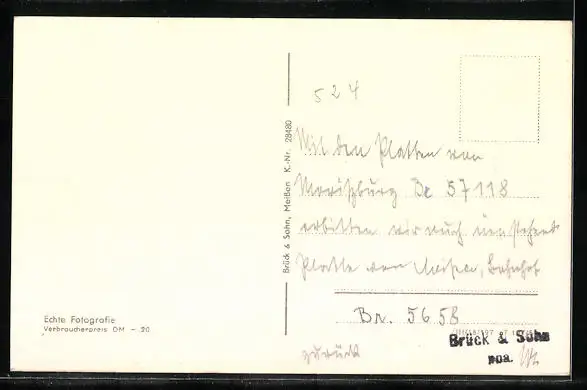 524
Brück & Sohn, Meißen K.-Nr. 28480
Mit den Platten von
Moritzburg Be 57118
erbitten wir auch
Platte von Meißen, Bahnhof
Br. 5658
zurück
Echte Fotografie
Verbraucherpreis DM -.20
Brück & Sohn
ppa.